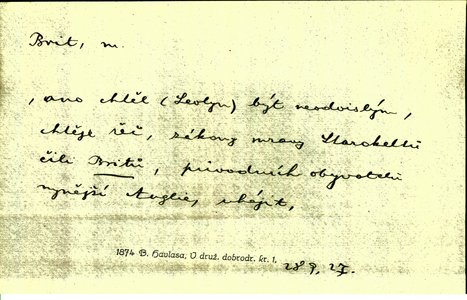 Brit, m.
, ano chtěl (Leolyn) být neodvislým,
chtěje řeč, zákony mravy Starokeltů
čili Britů, původních obyvatelů
nynější Anglie, uhájit,
1874 B. Havlasa, V druž. dobrodr. kr. 1.
28 9. 27.